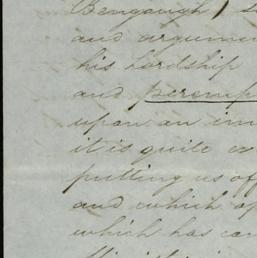 Bengough) s
and argumen
his Lordship
and peremp
upon an im
it is quite ev
putting us of
and which op
which has can